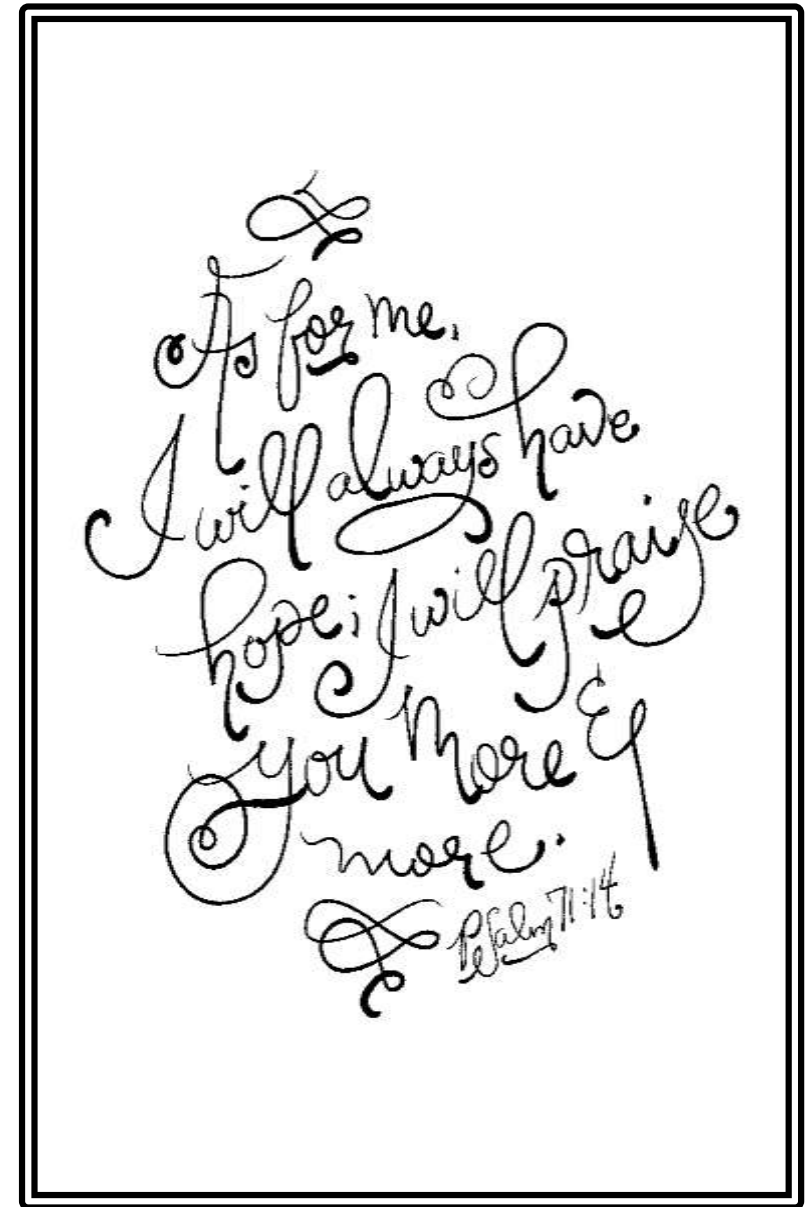 As for me,
I will always have
hope; I will praise
you more &
more.
Psalm 71:14